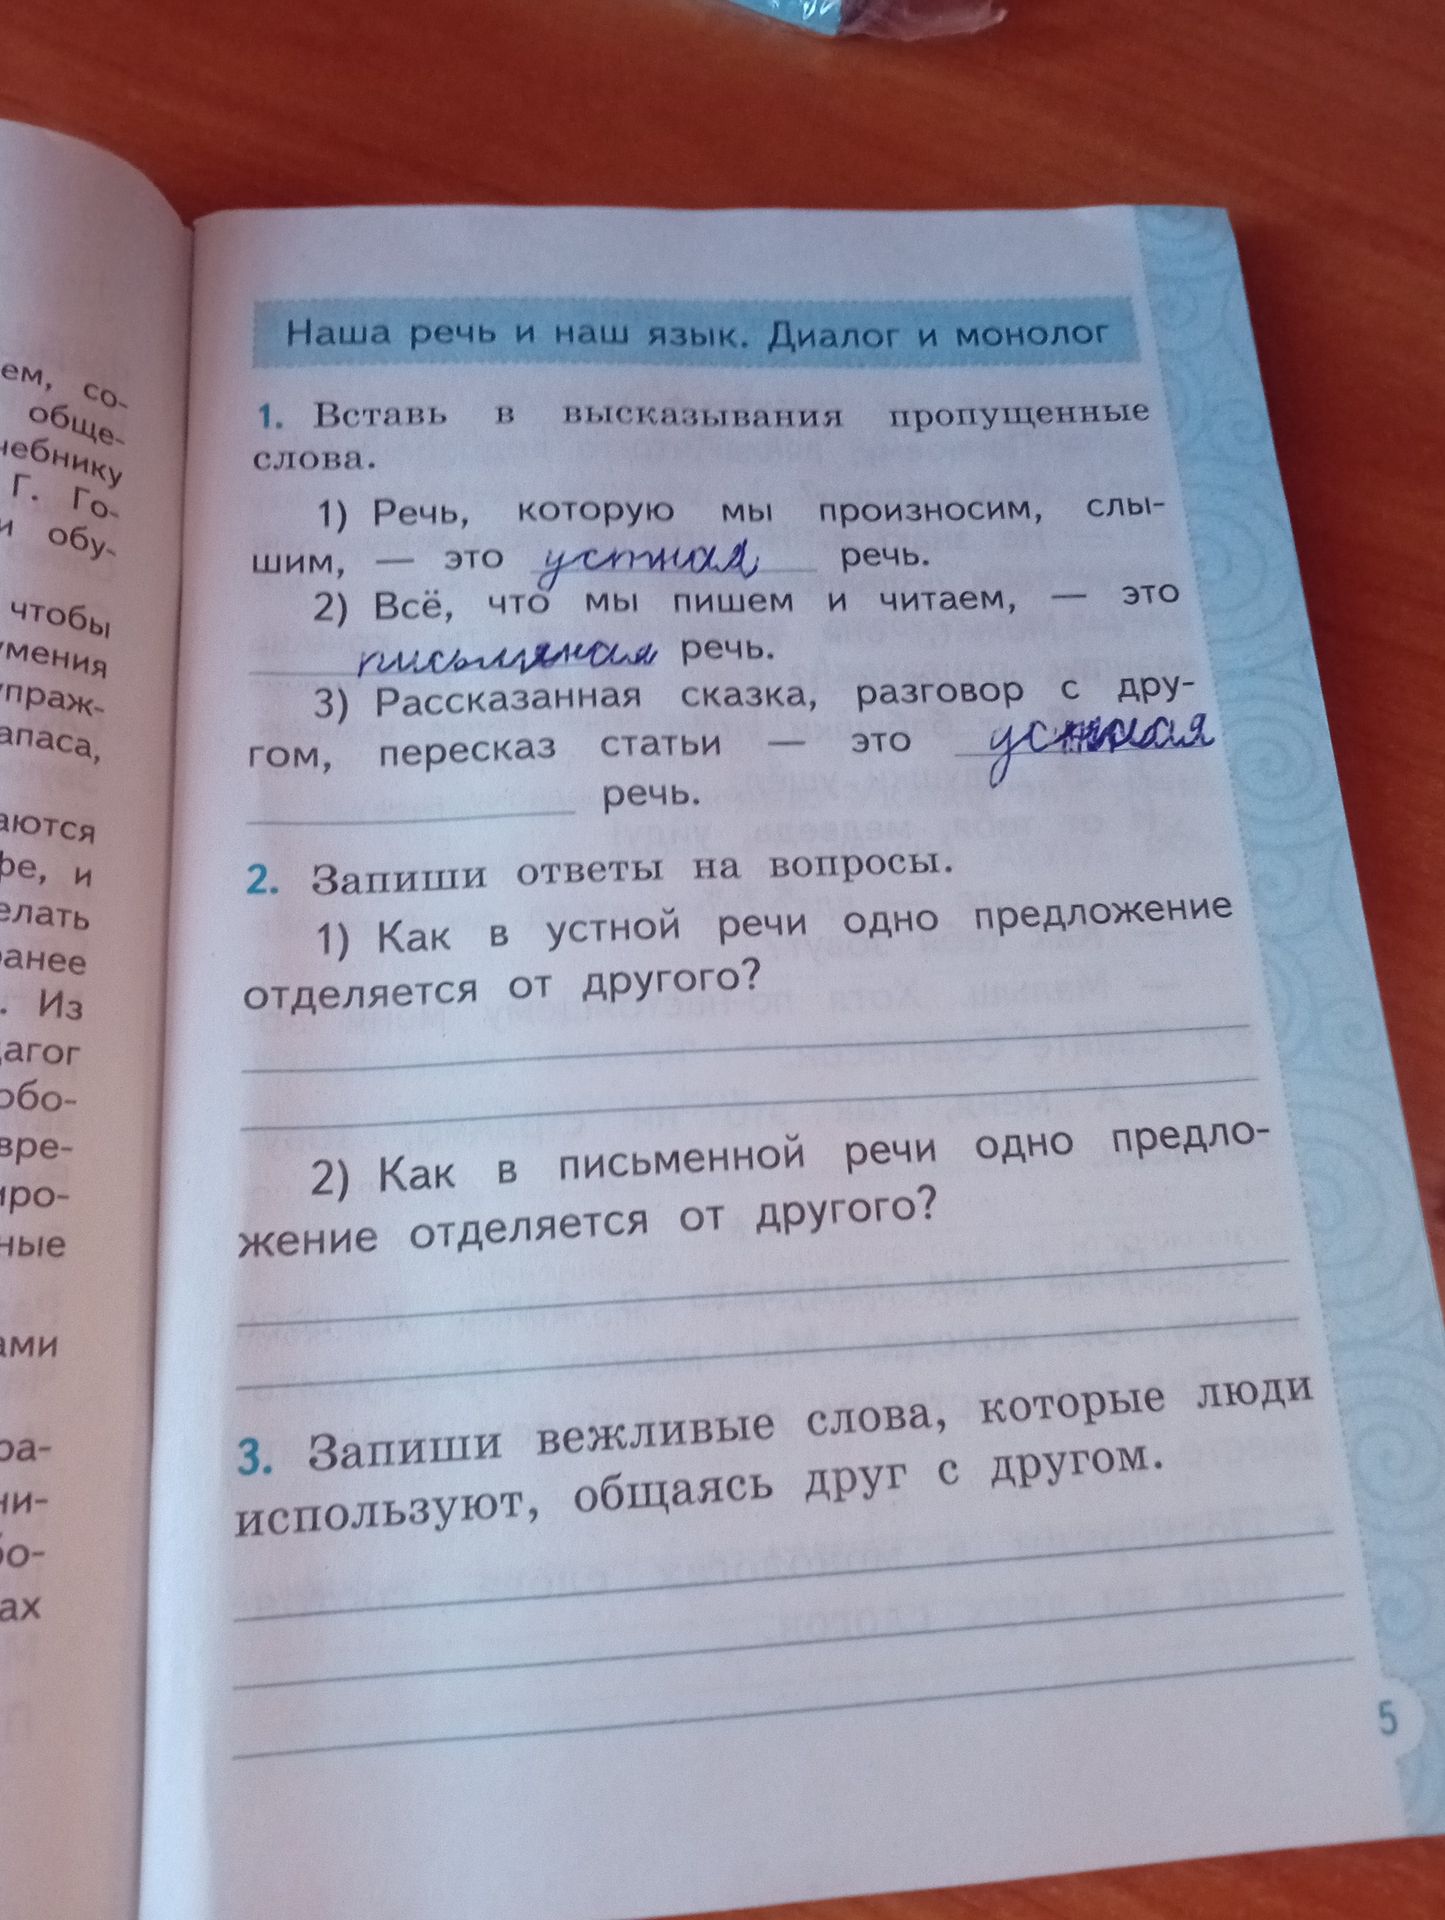 ем, со-
обще-
чебнику
Г. Го-
и обу-
чтобы
умения
упраж-
апаса,
аются
фе, и
елать
ранее
. Из
дагог
обо-
вре-
иро-
ные
ами
ра-
ни-
бо-
ах
Наша речь и наш язык. Диалог и монолог
1. Вставь в высказывания пропущенные
слова.
1) Речь, которую мы произносим, слы-
шим, — это устная речь.
2) Всё, что мы пишем и читаем, — это
письмяная речь.
3) Рассказанная сказка, разговор с дру-
гом, пересказ статьи — это устная
речь.
2. Запиши ответы на вопросы.
1) Как в устной речи одно предложение
отделяется от другого?
2) Как в письменной речи одно предло-
жение отделяется от другого?
3. Запиши вежливые слова, которые люди
используют, общаясь друг с другом.
5